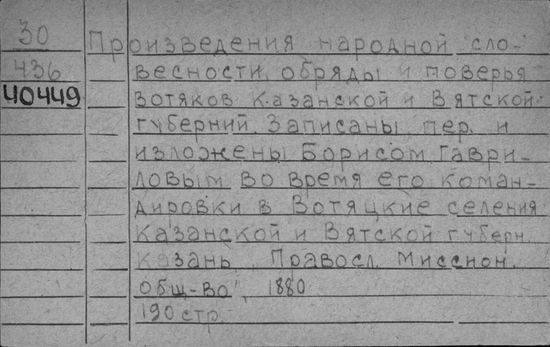 30 Произведения народной сло-
436 весности, обряды и поверья
40449 вотяков Казанской и Вятской
губерний. Записаны, пер. и
изложены Борисом Гаври-
ловым во время его коман-
дировки в Вотяцкие селения
Казанской и Вятской губерн.
Казань, "Правосл. Миссион.
общ-во", 1880
190 стр.